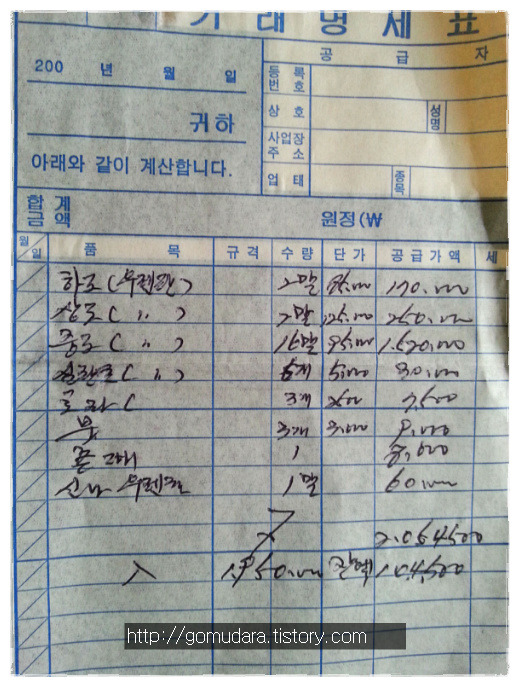 거래명세표
공급자
200 년 월 일
등록번호
귀하
상호 성명
사업장주소
아래와 같이 계산합니다.
업태 종목
합계금액 원정(₩
월일 품목 규격 수량 단가 공급가액 세
하도(우레탄) 2말 85,000 170,000
상도( 〃 ) 2말 125,000 250,000
중도( 〃 ) 16말 95,000 1,520,000
( 〃 ) 5,000 30,000
로라( 3개 7,500
붓 3개 3,000 9,000
폴대 1 8,000
신나 우레탄 1말 60,000
2,054,500
入 1,950,000 잔액 104,500
http://gomudara.tistory.com